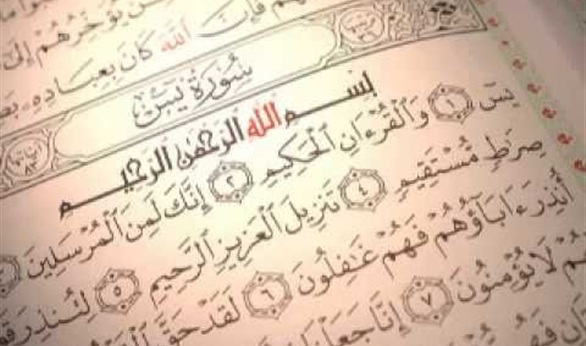 يُؤَخِّرُهُمْ إِلَىٰ
فَإِنَّ ٱللَّهَ كَانَ بِعِبَادِهِۦ
سُورَةُ يسٓ
بِسْمِ ٱللَّهِ ٱلرَّحْمَٰنِ ٱلرَّحِيمِ
يسٓ ١ وَٱلْقُرْءَانِ ٱلْحَكِيمِ ٢ إِنَّكَ لَمِنَ ٱلْمُرْسَلِينَ
صِرَٰطٍ مُّسْتَقِيمٍ ٤ تَنزِيلَ ٱلْعَزِيزِ ٱلرَّحِيمِ ٥ لِتُنذِرَ
أُنذِرَ ءَابَآؤُهُمْ فَهُمْ غَٰفِلُونَ ٦ لَقَدْ حَقَّ
لَا يُؤْمِنُونَ ٧ إِنَّا جَعَلْنَا